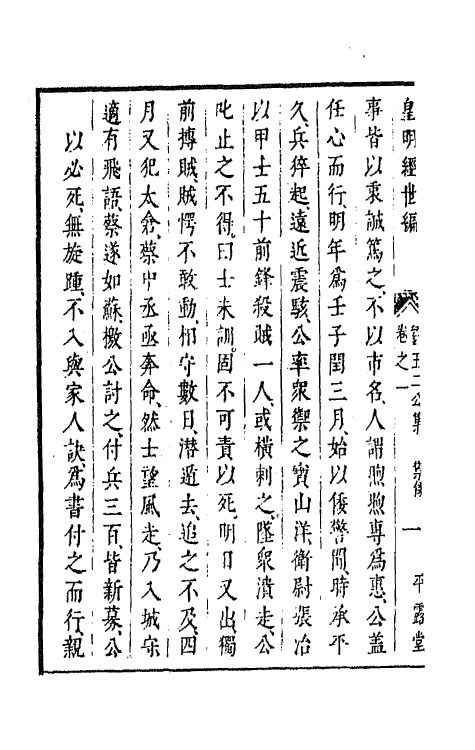 皇明經世編
卷之一
平露堂
事皆以衷誠篤之、不以市名、人謂煦煦專爲惠、公蓋
任心而行、明年爲壬子閏三月、始以倭警聞、時承平
久、兵猝起、遠近震駭、公率衆禦之寶山洋、衛尉張冶
以甲士五十前鋒殺賊一人、或横刺之、墜衆潰走、公
叱止之不得、曰士未訓、固不可責以死、明日又出獨
前搏賊、賊愕不敢動、相守數日、潜遁去、追之不及、四
月又犯太倉、蔡中丞亟奔命、然士望風走、乃入城守
適有飛語、蔡遂如蘇、檄公討之、付兵三百、皆新募、公
以必死、無旋踵、不入與家人訣、爲書付之而行、親